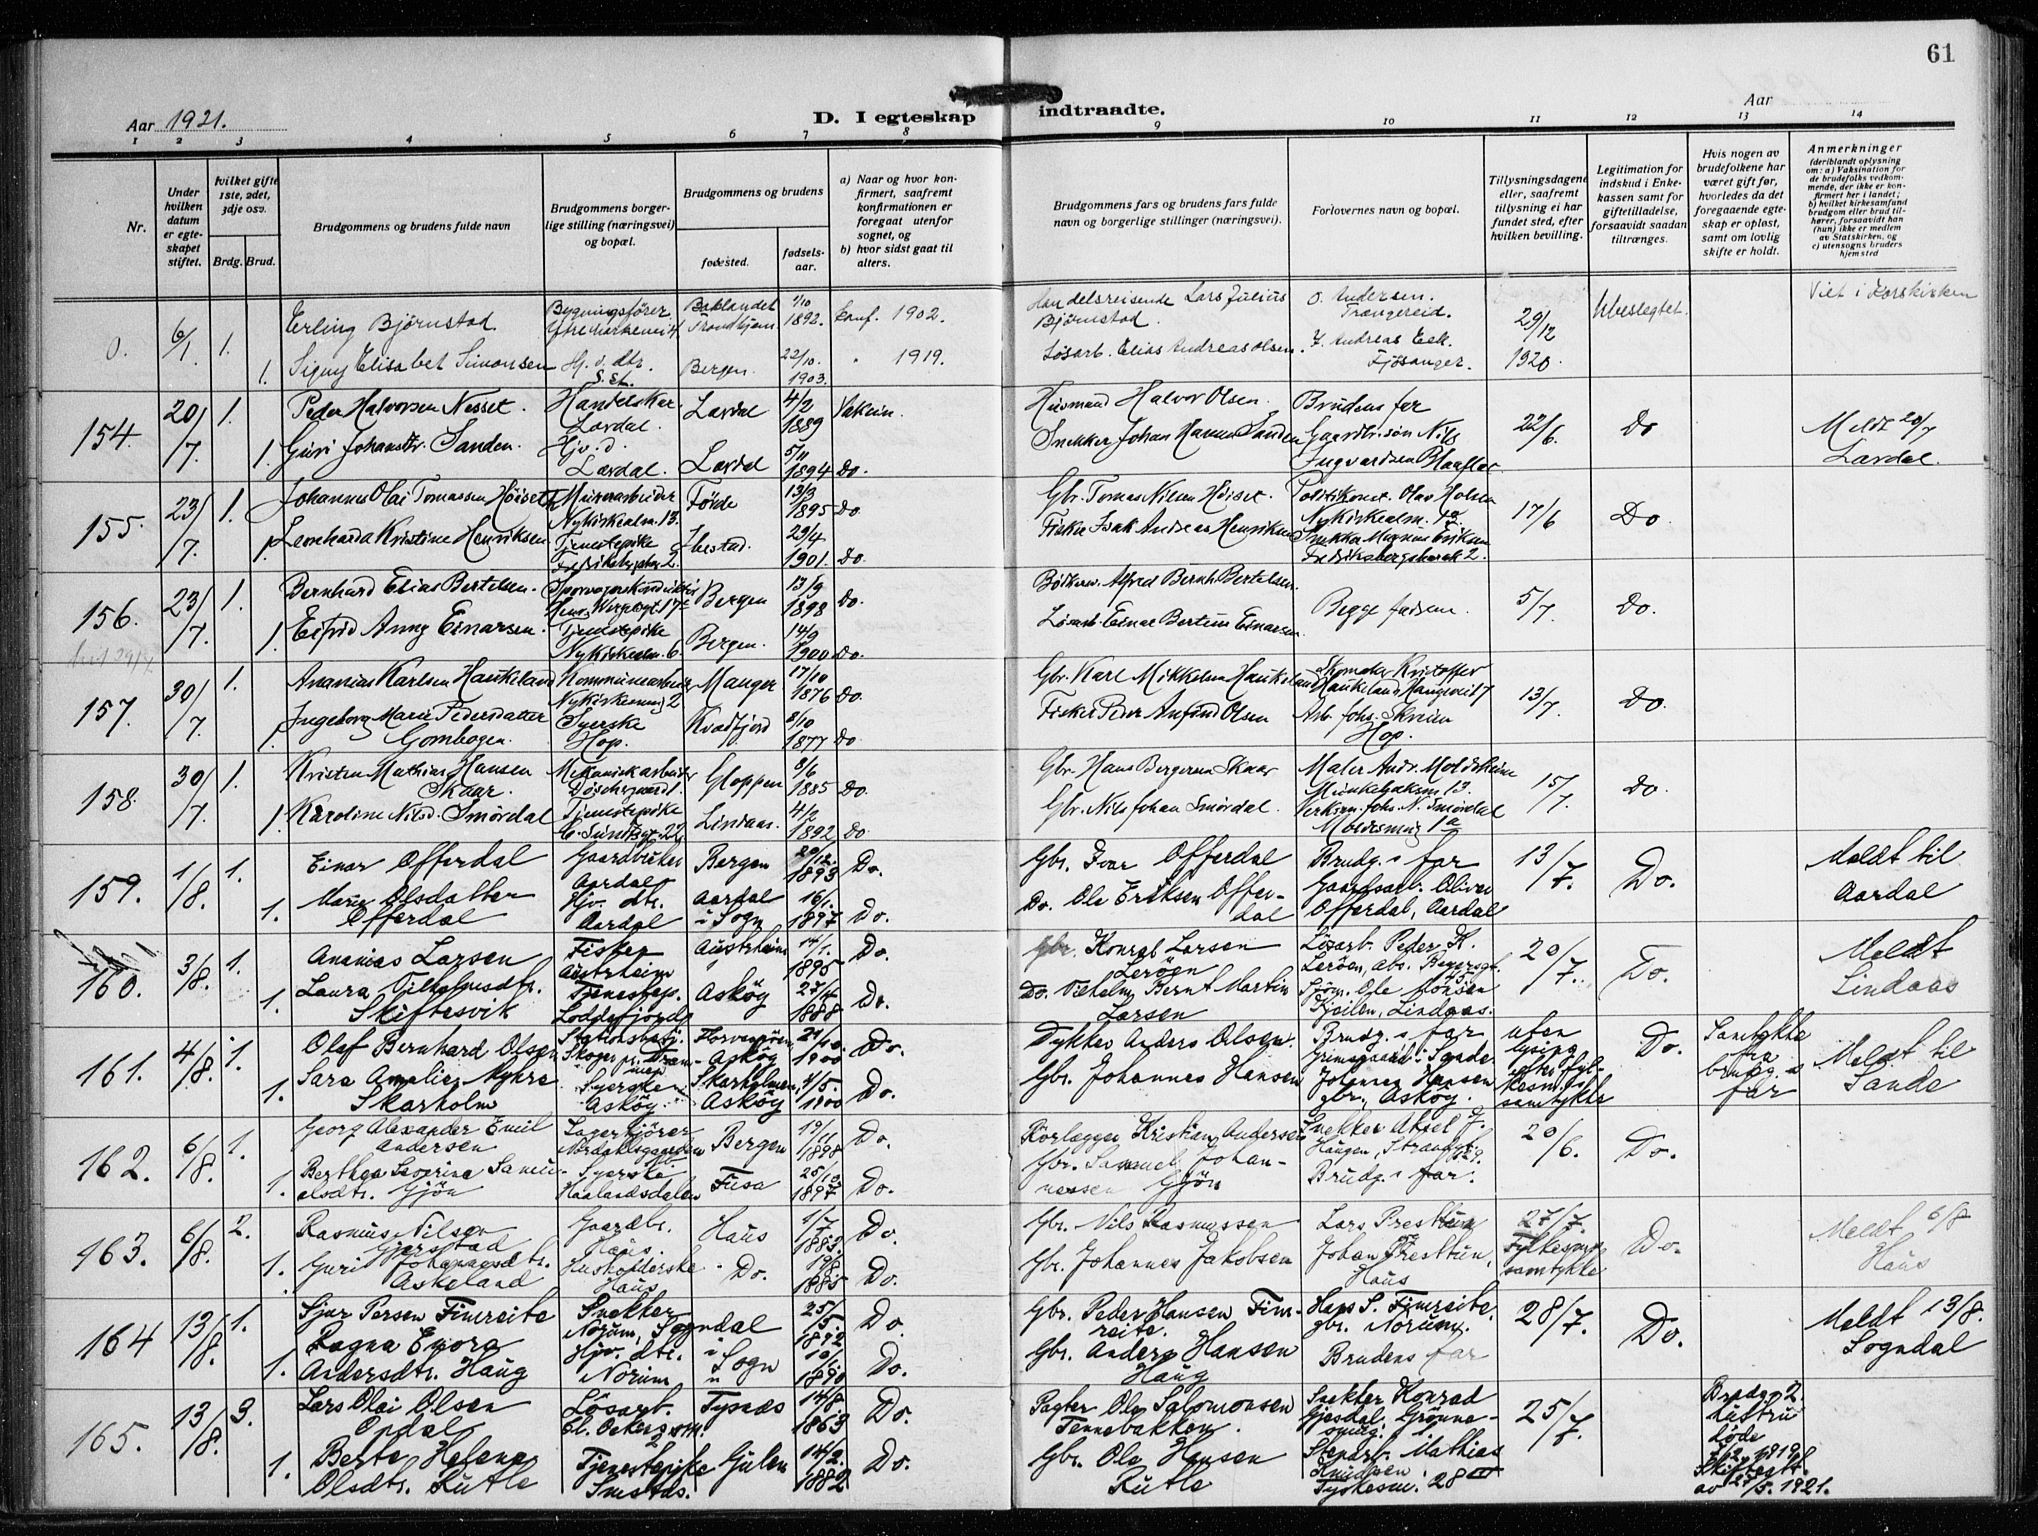 61
Aar 1921.
D. I egteskap indtraadte.
Aar
1 2 3 4 5 6 7 8 9 10 11 12 13 14
Nr.
Under hvilken datum er egteskapet stiftet.
hvilket gifte 1ste, 2det, 3dje osv.
Brdg. Brud.
Brudgommens og brudens fulde navn
Brudgommens borgerlige stilling (næringsvei) og bopæl.
Brudgommens og brudens
fødested.
fødselsaar.
a) Naar og hvor konfirmert, saafremt konfirmationen er foregaat utenfor sognet, og
b) hvor sidst gaat til alters.
Brudgommens fars og brudens fars fulde navn og borgerlige stillinger (næringsvei).
Forlovernes navn og bopæl.
Tillysningsdagene eller, saafremt tillysning ei har fundet sted, efter hvilken bevilling.
Legitimation for indskud i Enkekassen samt for giftetilladelse, forsaavidt saadan tiltrænges.
Hvis nogen av brudefolkene har været gift før, hvorledes da det foregaaende egteskap er opløst, samt om lovlig skifte er holdt.
Anmerkninger
(deriblandt oplysning om: a) Vaksination for de brudefolks vedkommende, der ikke er konfirmert her i landet; b) hvilket kirkesamfund brudgom eller brud tilhører, forsaavidt han (hun) ikke er medlem av Statskirken, og c) utensogns bruders hjemsted
0. 6/1 1. Erling Bjørnstad Bygningsfører Baklandet Trondhjem 1/10 1892. Konf. 1902. Handelsreisende Lars Julius Bjørnstad. O. Andersen. Trangereid. 29/12 1920. Ubeslegtet. Viet i Korskirken
1. Signy Elisabet Simonsen Hj. v. dtr. S. st. Bergen 22/10 1903. " 1919. Løsarb. Elias Andreas Olsen. Andreas Eek. Fjøsanger.
154. 20/7 1. Peder Halvorsen Nesset. Handelskar. Lærdal. Lærdal 4/2 1889 Husmand Halvor Olsen. Brudens far 22/6. Do Meldt 20/7 Lærdal.
1. Guri Johansdtr. Sanden. Hjv. d. Lærdal. Lærdal 5/11 1894 Do. Snekker Johan Sanden Gaardbr. søn Nils Ingvardsen
155. 23/7. 1. Johannes Olai Tomassen Høiseth Murerarbeider Nykirkealm. 13. Førde 13/3 1895 Do Gbr. Tomas Nilsen Høiset. Politikonst. Olav Nykirkealm. 17/6 Do.
1. Leonharda Kristine Henriksen Tjenestepike Ibestad. 29/4 1901. Do. Fisker Isak Andreas Henriksen Snekker Magnus Eriksen Fredriksbergsbark 2.
156. 23/7. 1. Bernhard Elias Bertelsen. Sporvogskonduktør Bergen 13/9 1898 Do. Bødkerm. Alfred Bernh Bertelsen. Begge fædrene. 5/7. Do.
1. Anny Einarsen. Tjenestepike Nykirkealm. 6. Bergen. 14/9 1900 Do. Løsarb. Einar Bertinus Einarsen.
157. 30/7. 1. Ananias Karlsen Haukeland Kommunearbeider Manger 17/10 1876 Do. Gbr. Karl Mikkelsen Haukeland Skomaker Kristoffer Haukeland 13/7. Do.
1. Ingeborg Marie Pedersdatter Gombogen. Syerske Hop. Kvædfjord 8/10 1877 Do Fisker Peder Anfind Olsen Arb. Johs. Hop.
158. 30/7. 1. Kristen Mathias Hansen Skaar. Mekaniskarbeider Gloppen 8/6 1885 Do. Gbr. Hans Bergersen Skaar Maler Andr. Moldskeine 13. 15/7. Do.
1. Karoline Nilsd. Smørdal Tjenestepike Lindaas. 4/2 1892 Do. Gbr. Nils Johan Smørdal. Verksm. Johs. N. Smørdal
159. 1/8. 1. Einar Offerdal Gaardbruker Aardal Bergen 29/12. 1893 Do. Gbr. Ivar Offerdal Brudg.s far 13/7. Do. Meldt til Aardal
1. Marie Olsdatter Offerdal Hjv. dtr. Aardal Aardal i Sogn 16/1. 1897 Do. Do. Ole Eriksen Offerdal Gaardsarb. Oliver Offerdal, Aardal
160. 3/8. 1. Ananias Larsen Fisker Austrheim Austrheim 14/1. 1895 Do. Gbr. Konrad Larsen Lerøen Løsarb. Peder K. Lerøen, 20/7. Do. Meldt Lindaas
1. Laura Vilhelmsdtr. Skiftesvik Tjenestep. Loddefjord Askøy 27/4 1888 Do. Do. Vilhelm Bernt Martin Larsen Sjøm. Ole Monsen Kjeilen, Lindaas.
161. 4/8. 1. Olaf Bernhard Olsen Stationsbetj. Skoger pr. Drammen Askøy 21/10. 1900 Do. Dykker Anders Olsen. Brudg.s far Sande uten lysing efter fylkesm.s samtykke Do. Samtykke fra brudg.s far Meldt til Sande
1. Sara Amalie Myhre Skarholm Syerske Askøy. Skarholmen, Askøy 4/5. 1900 Do. Gbr. Johannes Hansen Johannes Hansen gbr., Askøy.
162. 6/8. 1. Georg Alexander Emil Andersen Lagerkjører Bergen 19/11 1898 Do. Rørlægger Kristian Andersen Snekker Aksel J. Haugen, 20/6. Do.
1. Berthea Severine Samuelsdtr. Gjøn Syerske Haalandsdalen Fusa 25/10 1897 Do. Gbr. Samuel Johannessen Gjøn Brudg.s far.
163. 6/8. 2. Rasmus Nilsen Gjerstad Gaardbr. Haus. Haus 1/7 1883. Do. Gbr. Nils Rasmussen Lars Prestun 27/7. Fylkesm. samtykke Do. Meldt 6/8 Haus
1. Guri Johannesdtr. Askeland Husholderske Haus Do. 1885 Do. Gbr. Johannes Jakobsen Johan Presttun, Haus
164 13/8. 1. Sjur Persen Fimreite Snekker Norum, Sogndal i Sogn 25/5. 1892 Do. Gbr. Peder Hansen Fimreite. Hans S. Fimreite, gbr. Norum. 28/7. Do. Meldt 13/8. Sogndal
1. Ragna Enora Andersdtr. Haug Hjv. dtr. Norum " 19/1. 1890 Do. Gbr. Anders Hansen Haug Brudens far
165. 13/8. 3. Lars Olai Olsen Opdal Løsarb. Tysnes 14/8. 1863 Do. Pagter Ole Salomonsen Tennebakken Snekker Konrad Gjesdal, Grønnesmug. 25/7. Brudg. 2. hustru døde 7/2. 1919. Skifteatt. av 12/5. 1921.
1. Berte Helene Olsdtr. Rutle Tjenestepike Gulen 14/2. 1882 Do. Gbr. Ole Hansen Rutle Stenarb. Mathias Knudsen Tyskesm. 28